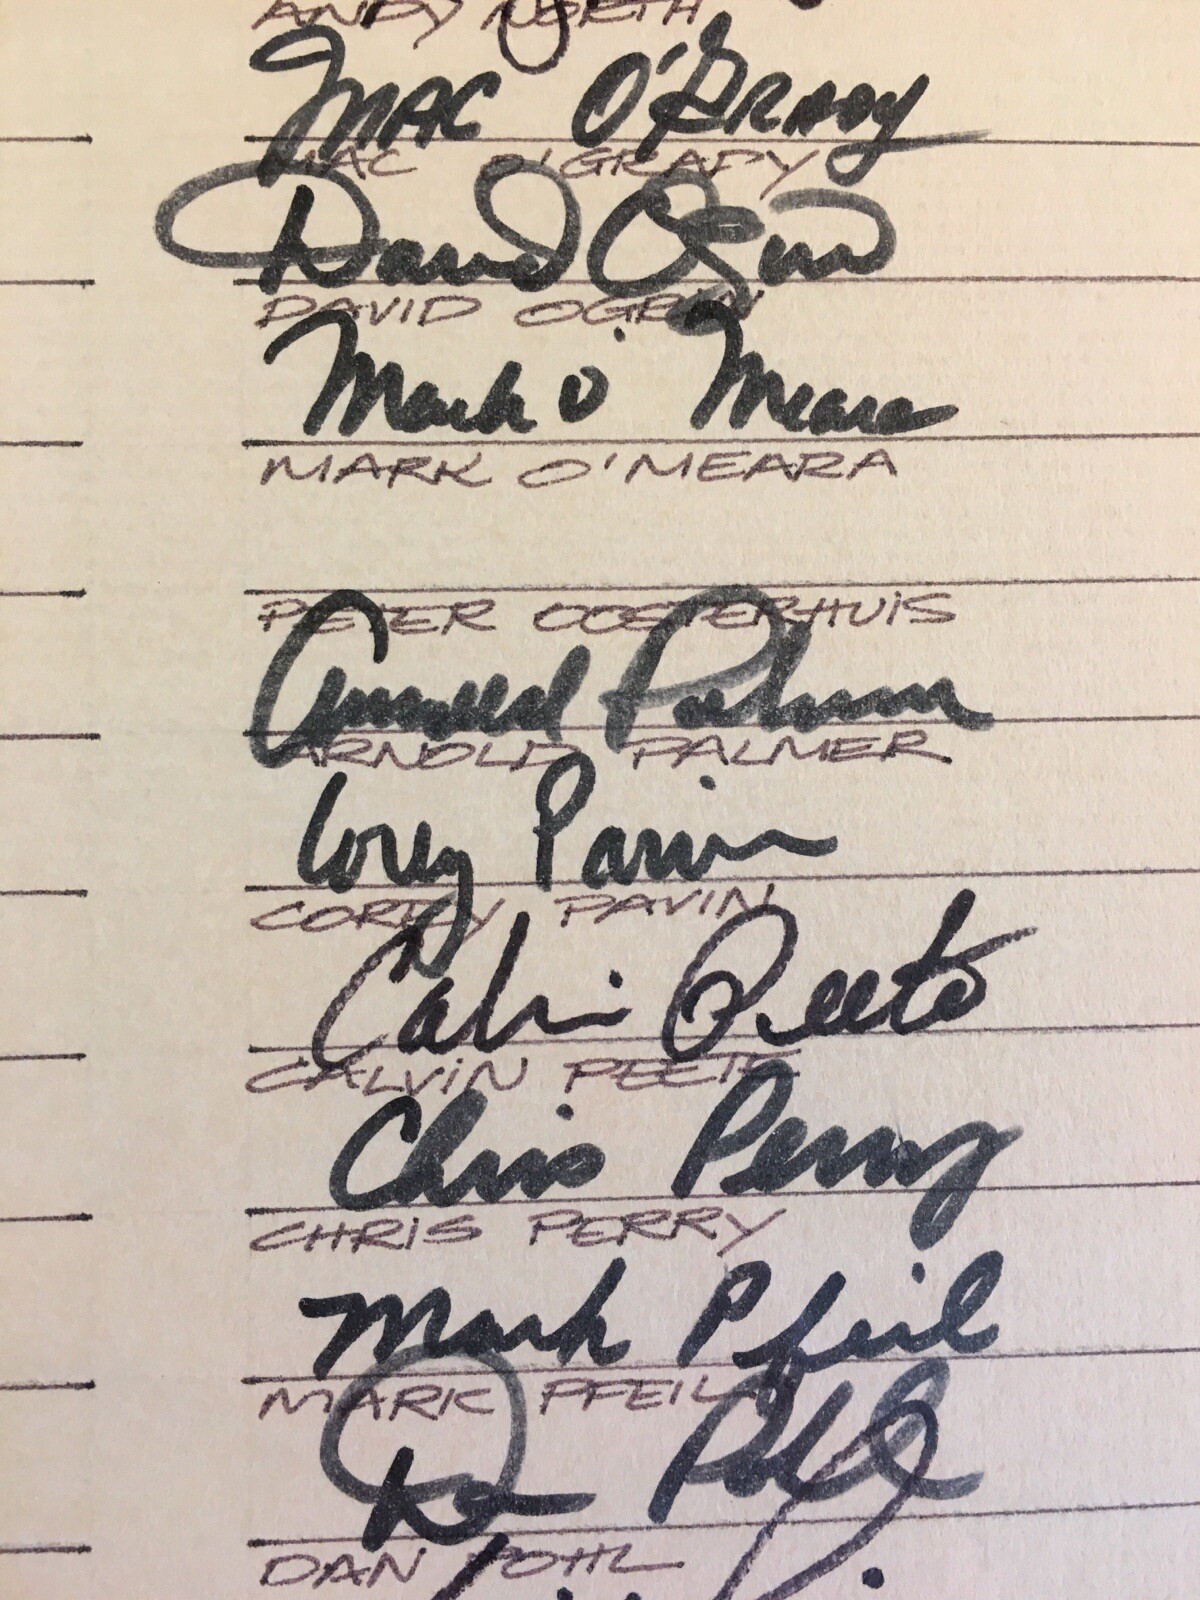 ANDY NORTH
Mac O'Grady
MAC O'GRADY
David Ogrin
DAVID OGRIN
Mark O'Meara
MARK O'MEARA
PETER OOSTERHUIS
Arnold Palmer
ARNOLD PALMER
Corey Pavin
COREY PAVIN
Calvin Peete
CALVIN PEETE
Chris Perry
CHRIS PERRY
Mark Pfeil
MARK PFEIL
Dan Pohl
DAN POHL